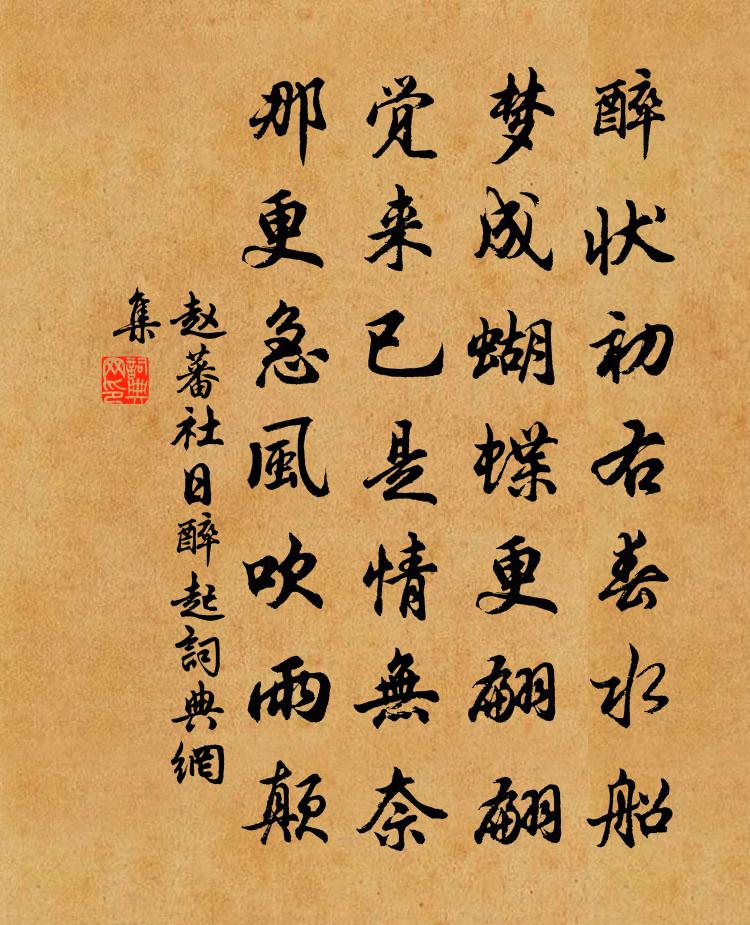 醉状初右春水船
梦成蝴蝶更翩翩
觉来已是情無奈
那更急風吹雨颠
赵蕃社日醉起詞典網
集
詞典
网印